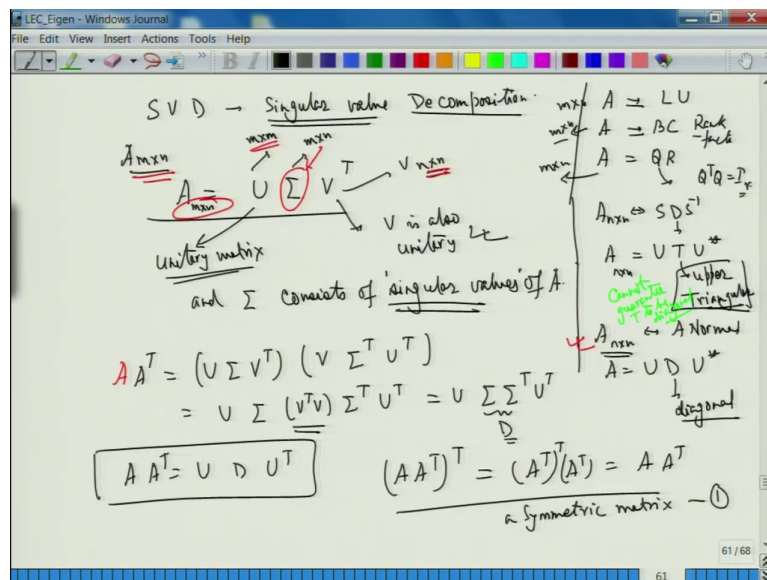 LEC_Eigen - Windows Journal
File Edit View Insert Actions Tools Help
B I
SVD → Singular value Decomposition.
mxm mxn
A mxn
A mxn = U Σ V^T
V nxn
unitary matrix
V is also unitary
and Σ consists of 'singular values' of A.
A A^T = (U Σ V^T) (V Σ^T U^T)
= U Σ (V^T V) Σ^T U^T = U Σ Σ^T U^T
D
A A^T = U D U^T
(A A^T)^T = (A^T)^T (A^T) = A A^T
a symmetric matrix - ①
mxn A = LU
mxn A = BC Rank
mxn A = QR
Q^T Q = I_r
A nxn ↔ S D S^-1
A nxn = U T U*
upper
Triangular
Cannot
guarantee
T to be
diagonal
A nxn ↔ A Normal
A = U D U*
diagonal
61 / 68
61